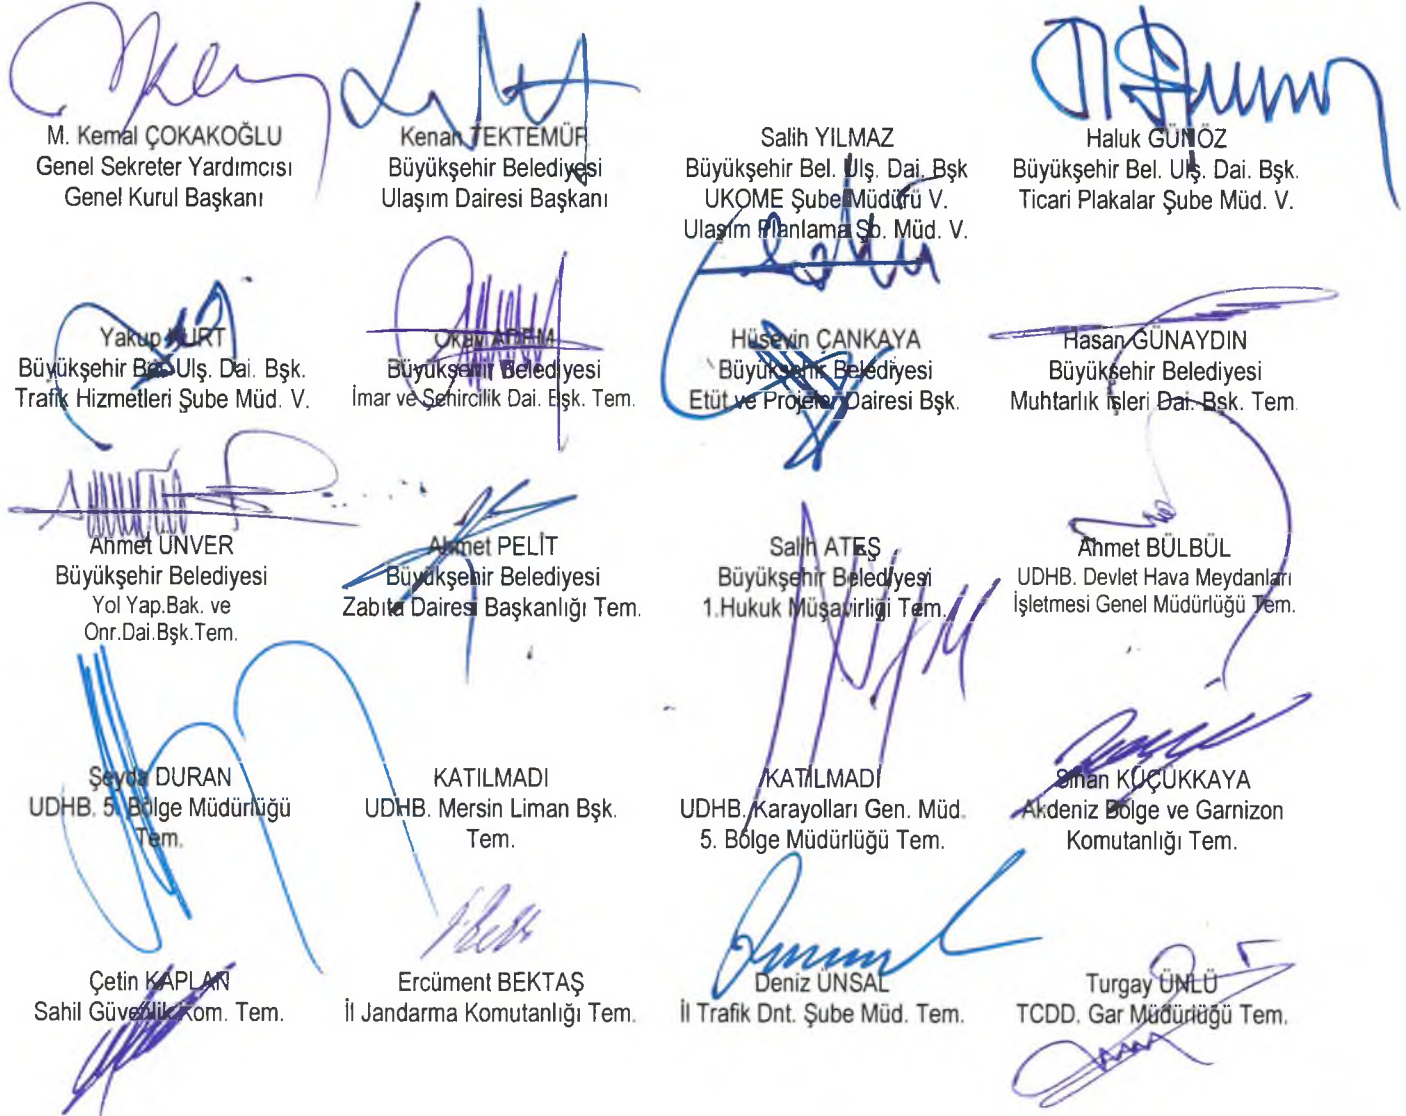 M. Kemal ÇOKAKOĞLU
Genel Sekreter Yardımcısı
Genel Kurul Başkanı
Kenan TEKTEMÜR
Büyükşehir Belediyesi
Ulaşım Dairesi Başkanı
Salih YILMAZ
Büyükşehir Bel. Ulş. Dai. Bşk
UKOME Şube Müdürü V.
Ulaşım Planlama Şb. Müd. V.
Haluk GÜNÖZ
Büyükşehir Bel. Ulş. Dai. Bşk.
Ticari Plakalar Şube Müd. V.
Yakup KURT
Büyükşehir Bel. Ulş. Dai. Bşk.
Trafik Hizmetleri Şube Müd. V.
Okay
Büyükşehir Belediyesi
İmar ve Şehircilik Dai. Bşk. Tem.
Hüseyin ÇANKAYA
Büyükşehir Belediyesi
Etüt ve Projeler Dairesi Bşk.
Hasan GÜNAYDIN
Büyükşehir Belediyesi
Muhtarlık İşleri Dai. Bsk. Tem.
Ahmet ÜNVER
Büyükşehir Belediyesi
Yol Yap.Bak. ve
Onr.Dai.Bşk.Tem.
Ahmet PELİT
Büyükşehir Belediyesi
Zabıta Dairesi Başkanlığı Tem.
Salih ATEŞ
Büyükşehir Belediyesi
1.Hukuk Müşavirliği Tem.
Ahmet BÜLBÜL
UDHB. Devlet Hava Meydanları
İşletmesi Genel Müdürlüğü Tem.
Şeyda DURAN
UDHB. 5. Bölge Müdürlüğü
Tem.
KATILMADI
UDHB. Mersin Liman Bşk.
Tem.
KATILMADI
UDHB. Karayolları Gen. Müd.
5. Bölge Müdürlüğü Tem.
Sinan KÜÇÜKKAYA
Akdeniz Bölge ve Garnizon
Komutanlığı Tem.
Çetin KAPLAN
Sahil Güvenlik Kom. Tem.
Ercüment BEKTAŞ
İl Jandarma Komutanlığı Tem.
Deniz ÜNSAL
İl Trafik Dnt. Şube Müd. Tem.
Turgay ÜNLÜ
TCDD. Gar Müdürlüğü Tem.